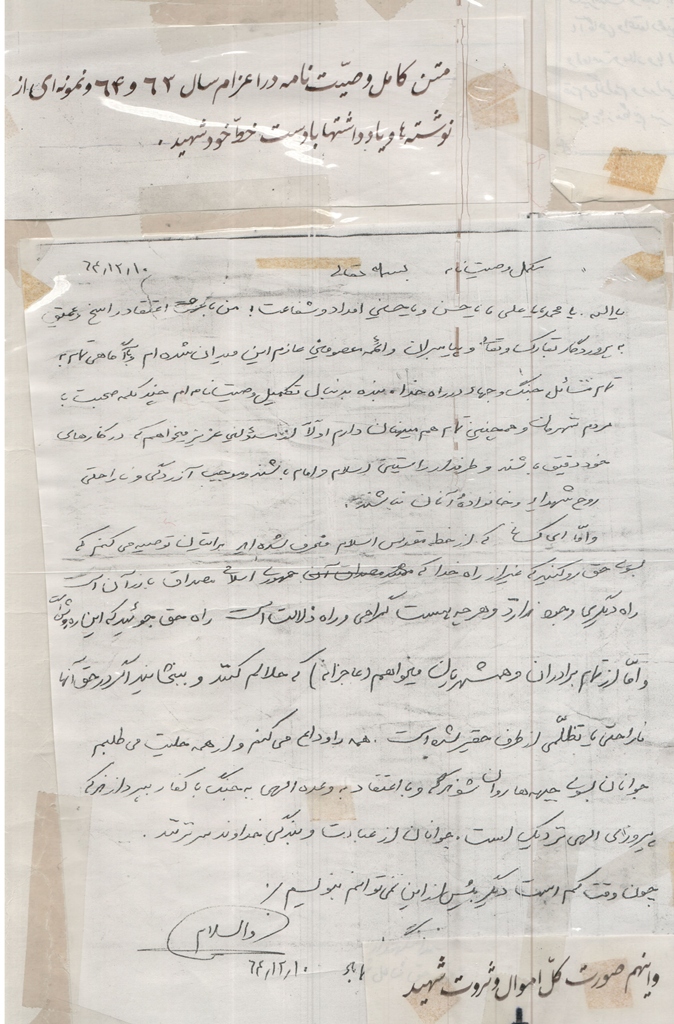 متن کامل وصیّت نامه در اعزام سال ۶۲ و ۶۴ و نمونه‌ای از
نوشته‌ها و یادداشتها با دست خطّ خود شهید.
مکمل وصیت نامه بسمه تعالی ۶۴/۱۲/۱۰
یا الله. یا محمد یا علی یا یا حسن و یا حسین امداد و شفاعت! من با اعتقاد راسخ و عمیق
به پروردگار تبارک و تعالی و پیامبران و ائمه معصومین عازم این میدان شده ام و با آگاهی تمام به
تمام مسائل جنگ و جهاد در راه خدا. بنده به دنبال تکمیل وصیت نامه ام چند کلمه صحبت با
مردم شهرمان و همچنین تمام هم میهنان دارم اولاً از مسئولین عزیز میخواهم که در کارهای
خود دقیق باشند و طرفدار راستین اسلام و امام باشند و موجب آزردگی و ناراحتی
روح شهدا و خانوادهٔ آنان نباشند.
و امّا ای کسانی که از خط مقدس اسلام منحرف شده اید برایتان توصیه می کنم که
بسوی حق رو کنید که غیر از راه خدا که جمهوری اسلامی مصداق بارز آن است
راه دیگری وجود ندارد و هر چه هست گمراهی و راه ذلالت است راه حق جوئید که این ره
و امّا از تمام برادران و همشهریان میخواهم (عاجزانه) که حلالم کنند و ببخشایند اگر در حق آنها
ناراحتی یا تظلّمی از طرف حقیر شده است. همه را وداع می کنم و از همه حلیت می طلبم
جوانان بسوی جبهه ها روان شوند و با اعتقاد به وعده الهی به جنگ با کفار بپردازند که
پیروزی الهی نزدیک است. جوانان از عبادت و بندگی خداوند سر نزنند.
چون وقت کم است دیگر بیش از این نمی توانم بنویسم
والسلام
۶۴/۱۲/۱۰
و اینهم صورت کلّ اموال و ثروت شهید